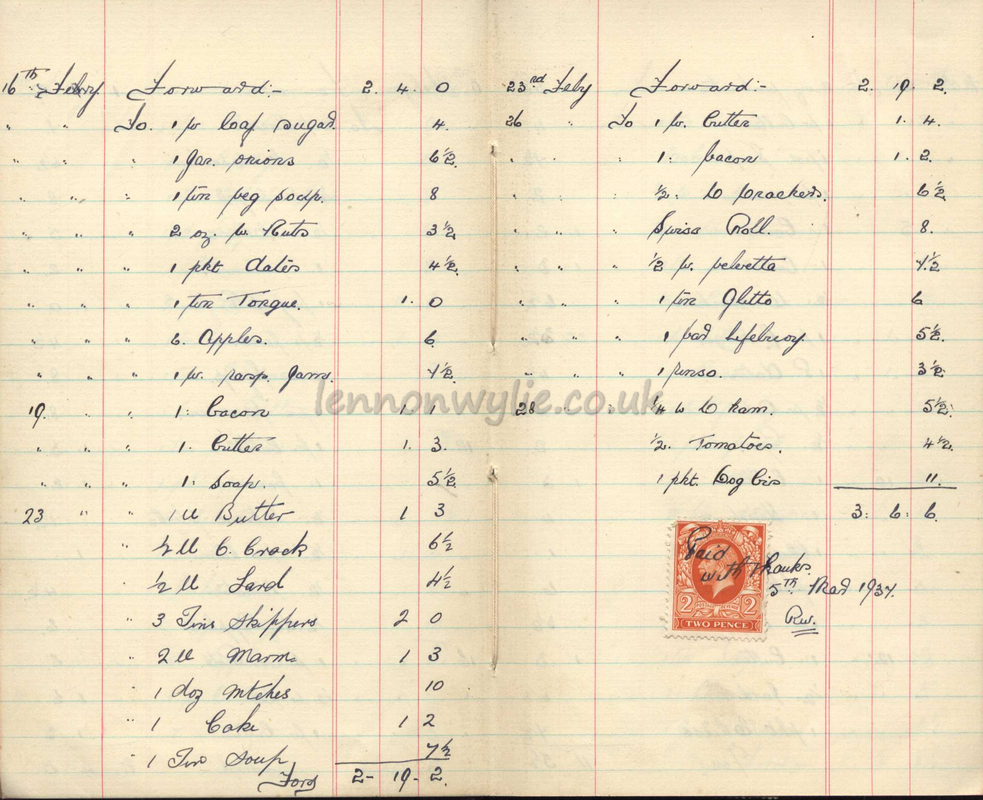 16TH Febry Forward:- 2. 4. 0
" " To. 1 lb loaf sugar. 4.
" " " 1 jar. onions 6½.
" " " 1 tin veg soup. 8
" " " 2 oz. w. Nuts 3½.
" " " 1 pkt dates 4½.
" " " 1 tin Tongue. 1. 0
" " " 6. Apples. 6.
" " " 1 lb. rasp. Jam. 7½.
19. " " 1: bacon 1 1
" " " 1. butter 1. 3.
" " " 1: Soap. 5½.
23 " " 1 lb Butter 1 3
" ½ lb C. Crack 6½
" ½ lb Lard 4½
" 3 Tins Skippers 2 0
" 2 lb Marm 1 3
" 1 doz Mtches 10
" 1 Cake 1 2
" 1 Tin Soup 7½
Ford 2 - 19 - 2.
23rd Feby Forward:- 2. 19. 2.
26 " To 1 lb. butter 1. 4.
" " " 1: bacon 1. 2.
" " " ½: C Crackers. 6½
" " " Swiss Roll. 8.
" " " ½ lb. velvetta 7½
" " " 1 tin Glitto 6
" " " 1 bar Lifebuoy 5½.
" " " 1 rinso. 3½.
28 " " ¼ lb C ham. 5½.
½. Tomatoes. 4½.
1 pkt. Dog Bis 11.
3: 6: 6.
Paid
with thanks.
5TH Mar 1937.
RW.
2 2
TWO PENCE
lennonwylie.co.uk